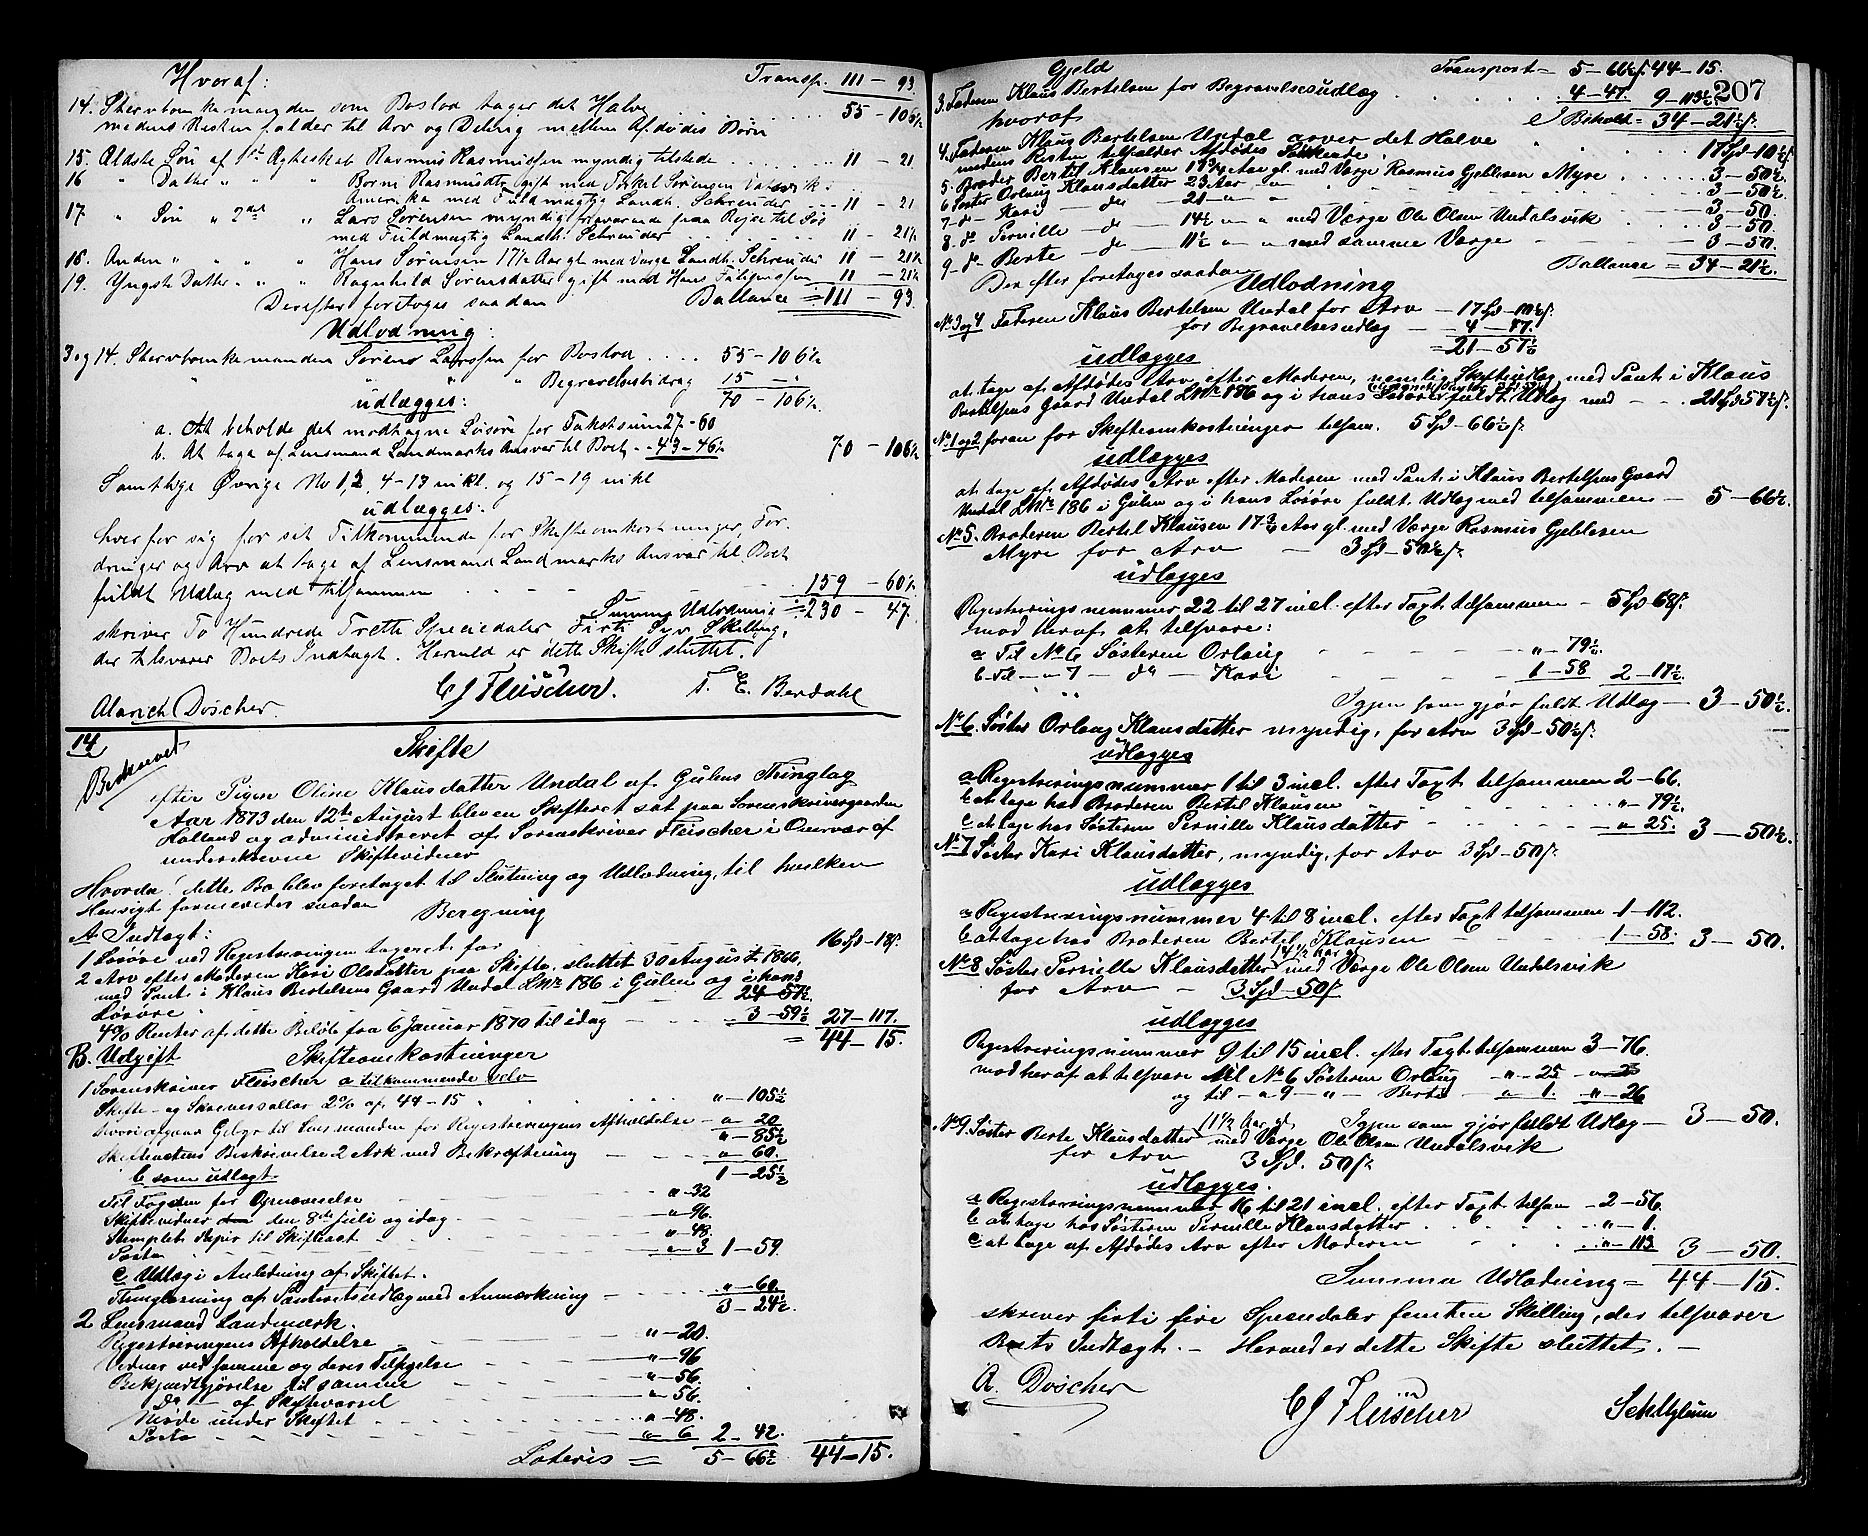 Hvoraf: Transp. 111 – 93.
14. Stervboenkemanden som Boslod tager det Halve . . . 55 – 106½
medens Resten falder til Arv og Deling mellem Afdødes Børn
15. Ældste Søn af 1ste Ægteskab Rasmus Rasmussen myndig tilstede . . . 11 – 21
16 " Datter " " " Borni Rasmusdtr gift med Torkel Sørensen
Amerika med Fuldmægtig Landh. Schreuder . . . 11 – 21
17 " Søn " 2det " Lars Sørensen myndig fraværende paa Rejse til Søs
med Fuldmægtig Landh. Schreuder . . . 11 – 21½
18. Anden " " " " Hans Sørensen 17½ Aar gl. med Værge Landh. Schreuder 11 – 21½
19. Yngste Datter " " " Ragnhild Sørensdatter gift med Hans 11 – 21½
Derefter foretoges saadan Ballance = 111 – 93.
Udlodning:
3 og 14. Stervboenkemanden Søren Larssen for Boslod . . . . 55 – 106½
" " " " Begravelsesbidrag 15 – "
udlægges: 70 – 106½
a. At beholde det modtagne Løsøre for Takstsum 27 – 60
b. At tage af Lensmand Landmarks Ansvar til Boet - 43 – 46½ 70 – 106½
Samtlige Øvrige No 1, 2, 4–13 inkl. og 15–19 inkl
udlægges:
hver for sig for sit Tilkommende for Skifteomkostninger, For-
dringer og Arv at tage af Lensmand Landmarks Ansvar til Boet
fuldt Udlæg med tilsammen - - - 159 – 60½
Summa Udlodning = 230 – 47.
skriver To Hundrede Treti Speciedaler Firti Syv Skilling,
der tilsvarer Boets Indtægt. Hermed er dette Skifte sluttet.
CJ Fleischer. T. E. Berdahl
Alarich Döscher.
14
Beskrevet
Skifte
efter Pigen Oline Klausdatter Undal af Gulens Thinglag
Aar 1873 den 12te August blev en Skifteret sat paa Sorenskrivergaarden
Holland og administreret af Sorenskriver Fleischer i Overvær af
underskrevne Skiftevidner
Hvorda! dette Bo blev foretaget til Slutning og Udlodning, til hvilken
Hensigt formeredes saadan Beregning
A. Indtægt:
1 Løsøre ved Registreringen tageret for 16 Spd – 18ß.
2 Arv efter Moderen Kari Olsdatter paa Skifte, sluttet 30 August 1866,
med Pant i Klaus Bertelsens Gaard Undal LNr 186 i Gulen og i hans
Løsøre " 24 – 57½.
4% Renter af dette Beløb fra 6 Januar 1870 til idag - - - 3 – 59½ 27 – 117.
= 44 – 15.
B. Udgift Skifteomkostninger
1 Sorenskriver Fleischer a tilkommende selv
Skifte- og Skriversallær 2% af 44 – 15 " . . . " – 105½
hvori afgaar Gebyr til Lensmanden for Registreringens Afholdelse – " – 20
" – 85½
Skifteactens Beskrivelse 2 Ark med Bekræftning - - - " – 60.
b som udlagt 1 – 25½
Til Fogden for Opnævnelse - - - " – 32
Skiftevidner den 8de Juli og idag - - - " – 96.
Stemplet Papir til Skifteact - - - " – 48.
Porto " – 3 1 – 59.
c Udlæg i Anledning af Skiftet.
Thinglæsning af Panteretsudlæg med Anmærkning - - - " – 60.
3 – 24½.
2 Lensmand Landmark.
Registreringens Afholdelse - - - " – 20.
Vidner ved samme og deres Tilsigelse - - - " – 96
Bekjendtgjørelse til samme - - - " – 56.
Do – af Skiftevarsel " – 56.
Møde under Skiftet - - - " – 48.
Porto - - - " – 6 2 – 42. "
Lateris = 5 – 66½ 44 – 15.
207
Gjeld Transport = 5 – 66½ß. 44 – 15.
3. Faderen Klaus Bertelsen for Begravelsesudlæg . . . 4 – 47. 9 – 113½
hvoraf Behold = 34 – 21½ß.
4. Faderen Klaus Bertelsen Undal arver det Halve " " 17 Spd – 10½ß
medens Resten tilfalder Afdødes Søskende:
5. Broder Bertil Klausen 17¾ Aar gl. med Værge Rasmus Gjeblesen Myre . . . 3 – 50½.
6 Søster Orloug Klausdatter 23 Aar " . . . 3 – 50½.
7 – do – Kari – do – 21 – " – " . . . 3 – 50.
8. do Pernille – do – 14½ – " – " med Værge Ole Olsen Undalsvik - - - 3 – 50.
9 – do – Berte – do – 11½ – " – " med samme Værge - - - 3 – 50.
Derefter foretages saadan Ballance = 34 – 21½.
Udlodning
No 3 og 4 Faderen Klaus Bertelsen Undal for Arv – 17 Spd – 10½ß.
for Begravelsesudlæg – 4 – 47.
udlægges = 21 – 57½
at tage af Afdødes Arv efter Moderen, nemlig Skifteudlæg med Pant i Klaus
Bertelsens Gaard Undal LNr 186 og i hans Løsøre fuldt Udlæg med – – . 21 Spd 57½ß.
No 1 og 2 foran for Skifteomkostninger tilsam. 5 Spd – 66½ß.
udlægges
at tage af Afdødes Arv efter Moderen med Pant i Klaus Bertelsens Gaard
Undal LNr 186 i Gulen og i hans Løsøre fuldt Udlæg med tilsammen – 5 – 66½.
No 5. Broderen Bertil Klausen 17¾ Aar gl. med Værge Rasmus Gjeblesen
Myre for Arv – 3 Spd – 50½ß.
udlægges
Registreringsnummer 22 til 27 incl. efter Taxt tilsammen – 5 Spd 68ß.
mod heraf at tilsvare:
a Til No 6 Søsteren Orloug - - - " – 79½.
b Til – " – 7 – do – Kari - - - 1 – 58 2 – 17½.
Igjen som gjør fuldt Udlæg – 3 – 50½.
No 6. Søster Orloug Klausdatter myndig, for Arv 3 Spd – 50½ß.
udlægges
a Registreringsnummer 1 til 3 incl. efter Taxt tilsammen 2 – 66.
b at tage hos Broderen Bertil Klausen " . . . " – 79½.
c at tage hos Søsteren Pernille Klausdatter - - - " – 25. 3 – 50½.
No 7 Søster Kari Klausdatter, myndig, for Arv 3 Spd – 50ß.
udlægges
a Registreringsnummer 4 til 8 incl. efter Taxt tilsammen 1 – 112.
b at tage hos Broderen Bertil Klausen - - - 1 – 58. 3 – 50.
No 8 Søster Pernille Klausdatter 14½ Aar gl. med Værge Ole Olsen Undalsvik
for Arv – 3 Spd – 50ß
udlægges
Registreringsnummer 9 til 15 incl. efter Taxt tilsammen 3 – 76.
mod heraf at tilsvare til No 6 Søsteren Orloug – " – 25
og til – " 9 – " – Berte – " – 1. " – 26
Igjen som gjør fuldt Udlæg – 3 – 50.
No 9. Søster Berte Klausdatter 11½ Aar gl. med Værge Ole Olsen Undalsvik
for Arv 3 Spd. 50ß
udlægges.
a Registreringsnummer 16 til 21 incl. efter Taxt tilsam – 2 – 56.
b at tage hos Søsteren Pernille Klausdatter . . . " – 1.
c at tage af Afdødes Arv efter Moderen . . . " – 113 3 – 50.
Summa Udlodning = 44 – 15.
skriver firti fire Speciedaler femten Skilling, der tilsvarer
Boets Indtægt. – Hermed er dette Skifte sluttet. –
A. Döscher CJ Fleischer